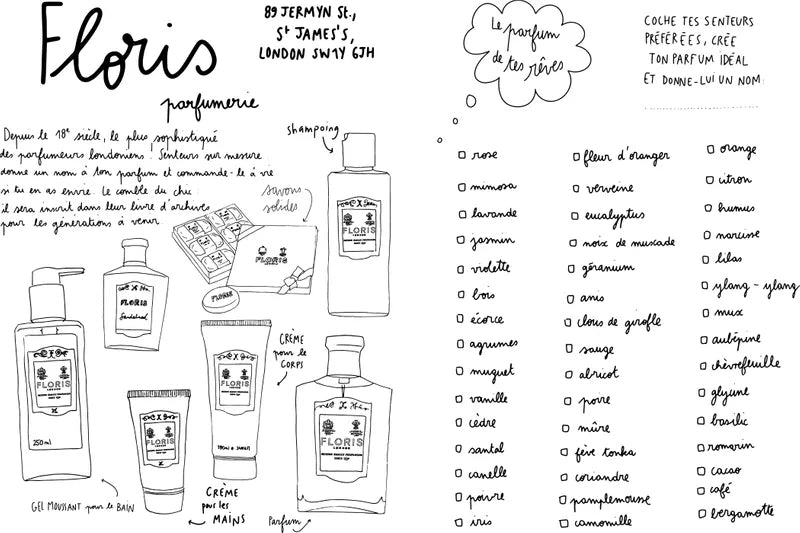 Floris
parfumerie
89 JERMYN St.,
St JAMES'S,
LONDON SW1Y 6JH
Depuis le 18e siècle, le plus sophistiqué
des parfumeurs londoniens. Senteurs sur mesure
donne un nom à ton parfum et commande-le à vie
si tu en as envie. Le comble du chic :
il sera inscrit dans leur livre d'archives
pour les générations à venir.
shampoing
savons
solides
FLORIS
LONDON
FLORIS
FLORIS
LONDON
FLORIS
Sandalwood
FLORIS
LONDON
250 ml
GEL MOUSSANT pour le BAIN
FLORIS
LONDON
CRÈME
pour les
MAINS
FLORIS
LONDON
CRÈME
pour le
CORPS
FLORIS
LONDON
Parfum
Le parfum
de tes rêves
COCHE TES SENTEURS
PRÉFÉRÉES, CRÉE
TON PARFUM IDÉAL
ET DONNE-LUI UN NOM:
rose
mimosa
lavande
jasmin
violette
bois
écorce
agrumes
muguet
vanille
cèdre
santal
canelle
poivre
iris
fleur d'oranger
verveine
eucalyptus
noix de muscade
géranium
anis
clous de girofle
sauge
abricot
poire
mûre
fève tonka
coriandre
pamplemousse
camomille
orange
citron
humus
narcisse
lilas
ylang-ylang
musc
aubépine
chèvrefeuille
glycine
basilic
romarin
cacao
café
bergamotte